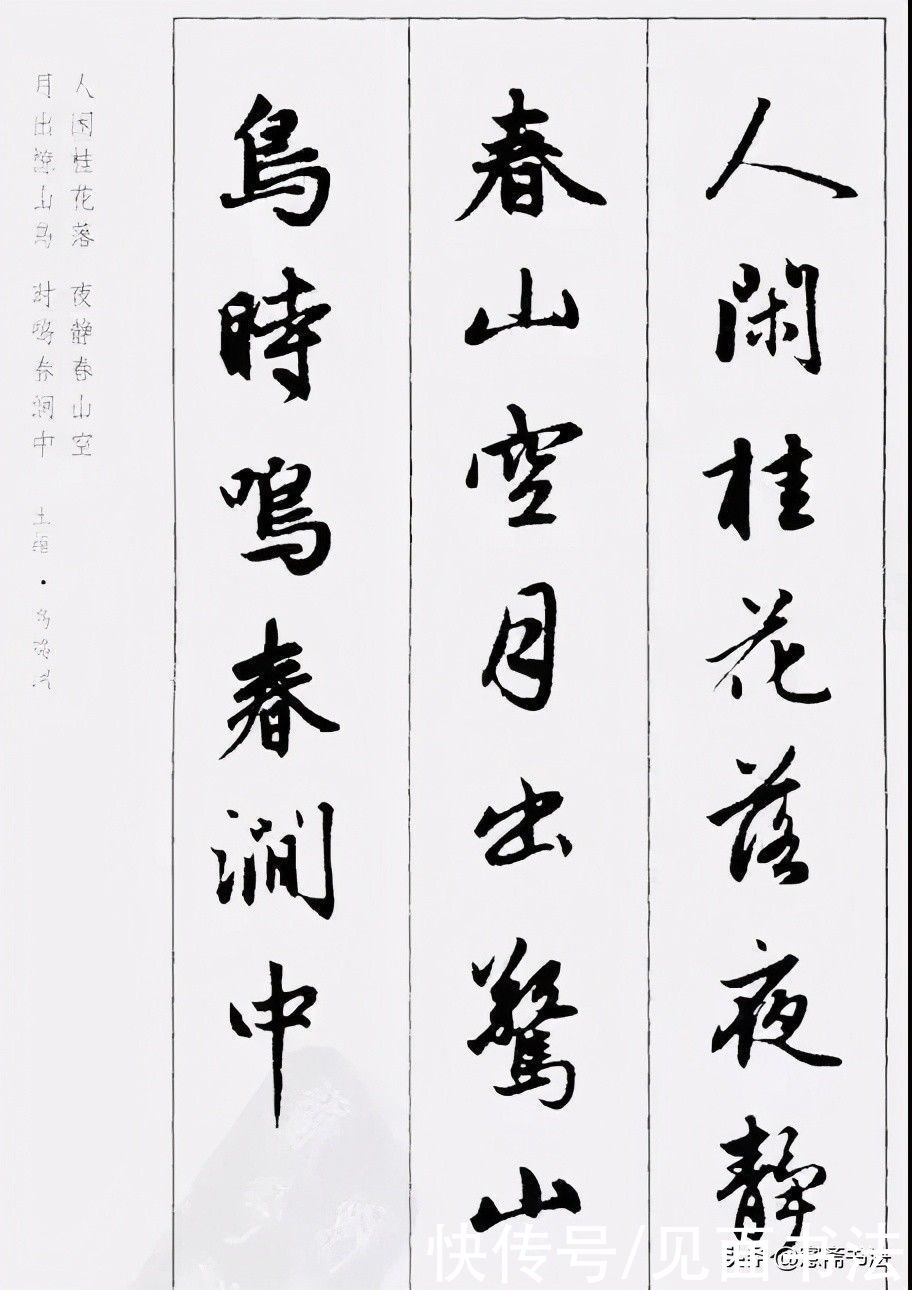 人閑桂花落夜靜
春山空月出驚山
鳥時鳴春澗中
人闲桂花落 夜静春山空
月出惊山鸟 时鸣春涧中 王维·鸟鸣涧
快传号/见面书法
头条@惢斋书法